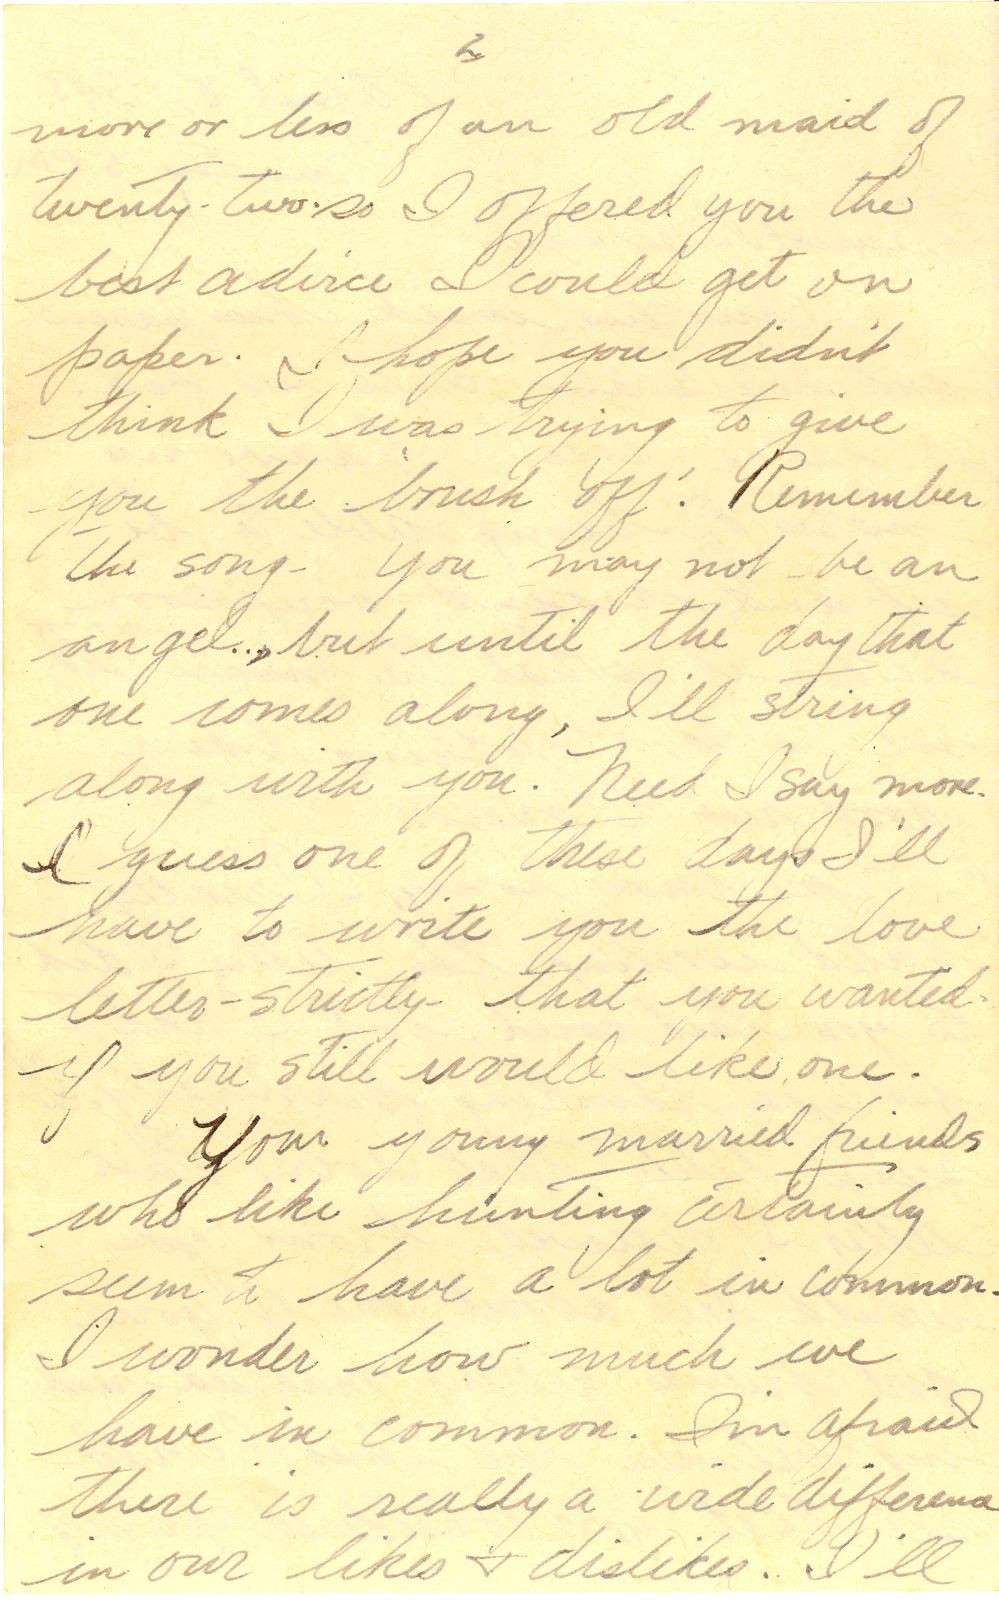 2
more or less of an old maid of
twenty-two-so I offered you the
best advice I could get on
paper. I hope you didn't
think I was trying to give
you the 'brush off'. Remember
the song- You may not be an
angel.., but until the day that
one comes along, I'll string
along with you. Need I say more.
I guess one of these days I'll
have to write you the love
letter-strictly- that you wanted-
if you still would like one.
Your young married friends
who like hunting certainly
seem to have a lot in common.
I wonder how much we
have in common. I'm afraid
there is really a wide difference
in our likes & dislikes. I'll